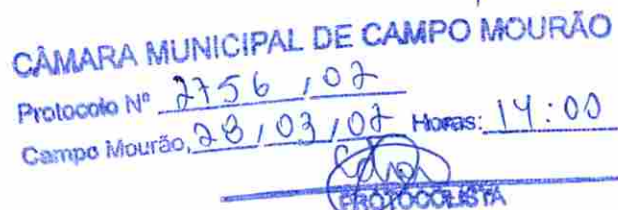 CÂMARA MUNICIPAL DE CAMPO MOURÃO
Protocolo Nº 2756 / 07
Campo Mourão, 28 / 03 / 07 Horas: 14:00
PROTOCOLISTA